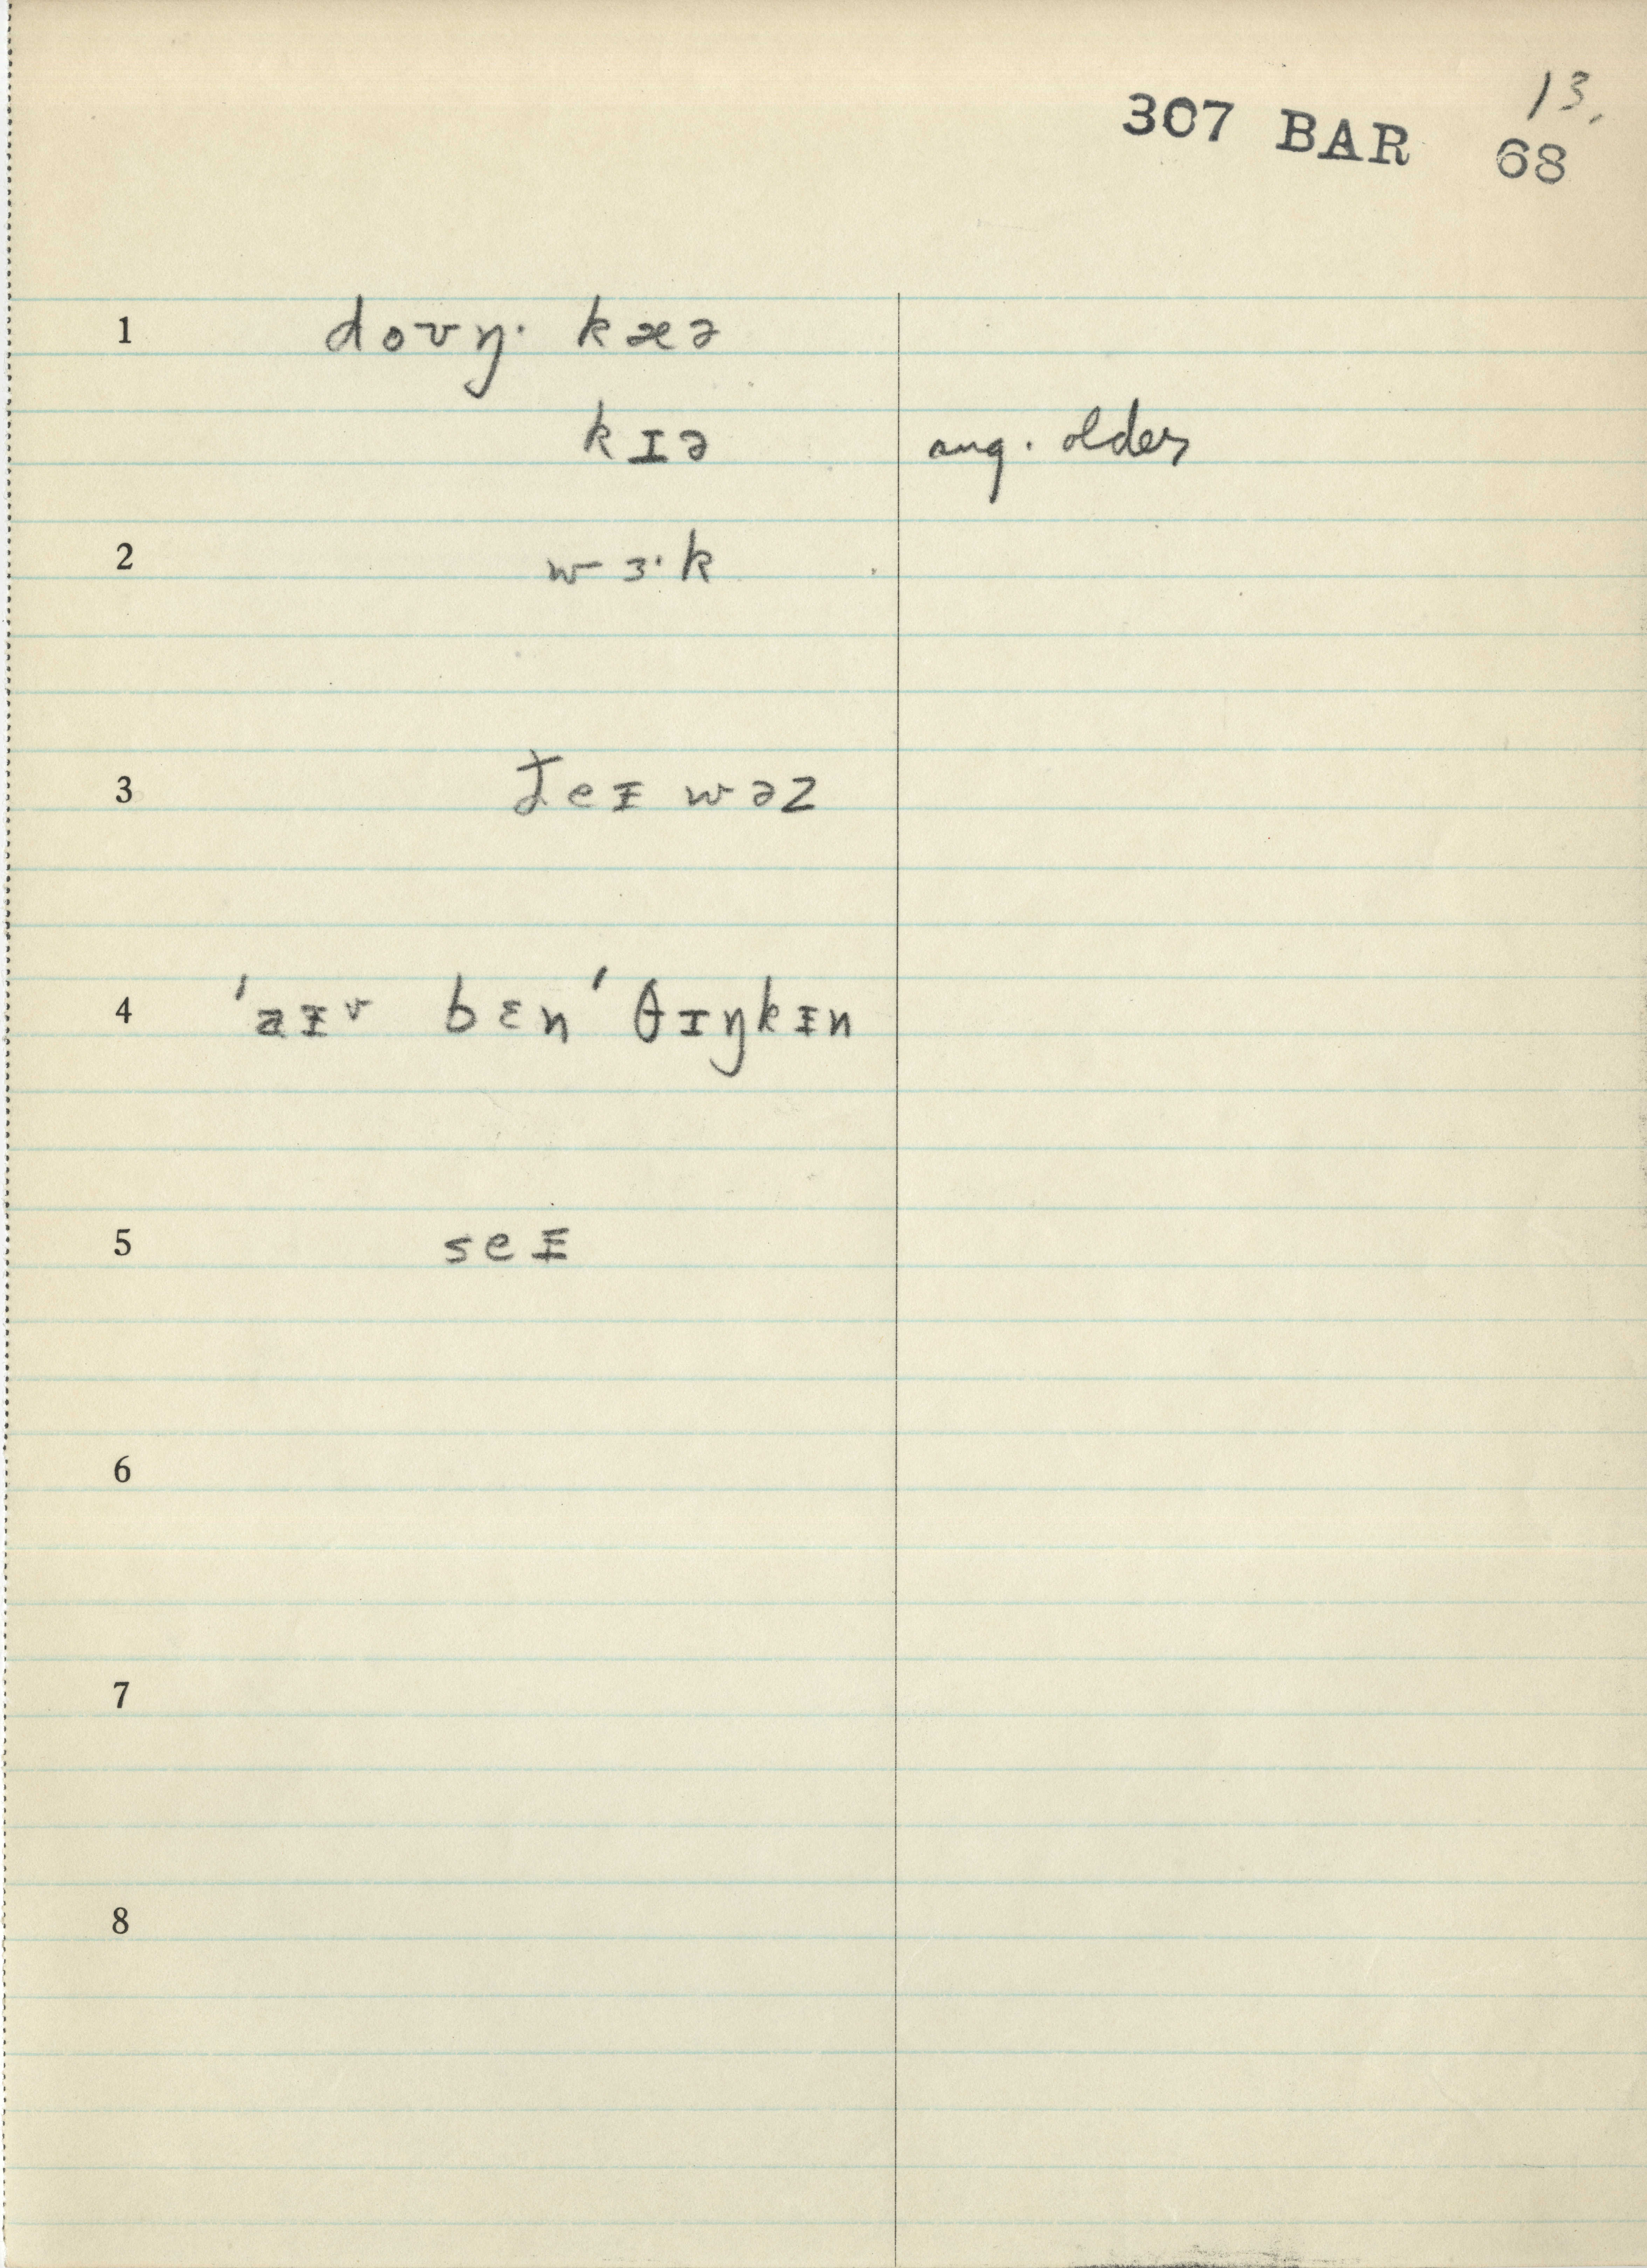 13.
307 BAR 68
1 doʊŋ· kæə
kɪə aug. older
2 wɜ·k
3 ðeᵻ wəz
4 ˈaᵻv bɛn ˈθɪŋkᵻn
5 seᵻ
6
7
8